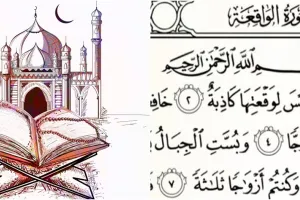 ورَةُ الوَاقِعَة
سْمِ ٱللَّهِ ٱلرَّحْمَٰنِ ٱلرَّحِيمِ
لِوَقْعَتِهَا كَاذِبَةٌ ٢
٤ وَبُسَّتِ ٱلْجِبَالُ
وَكُنتُمْ أَزْوَٰجًا ثَلَٰثَةً ٧